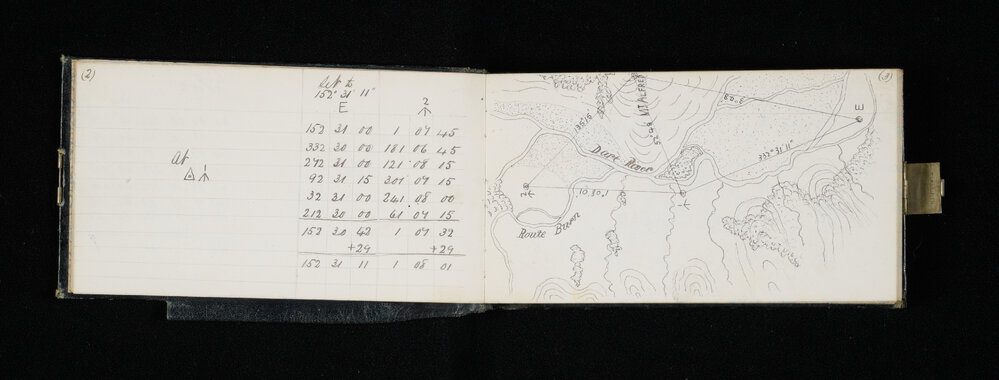 (2)
Set to
152° 31' 11"
E 2
152 31 00 1 07 45
332 30 00 181 06 45
272 31 00 121 08 15
92 31 15 301 07 15
32 31 00 241 08 00
212 30 00 61 07 15
152 30 42 1 07 32
+29 +29
152 31 11 1 08 01
At
(3)
MT ALFRED
E
Dart River
332° 31' 11"
2
Route Burn